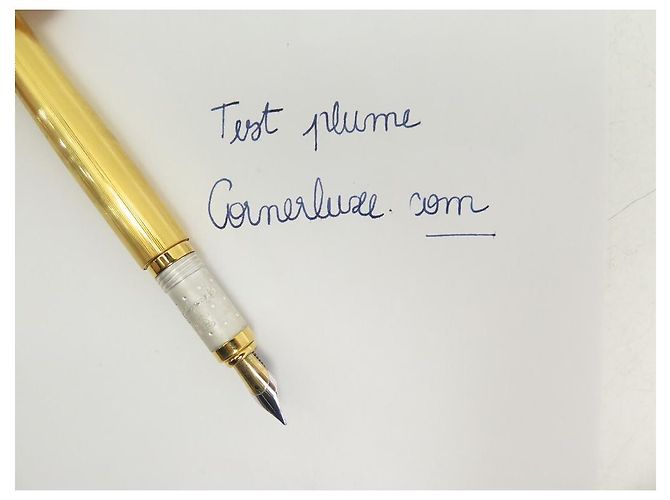 Test plume
Cornerluxe. com